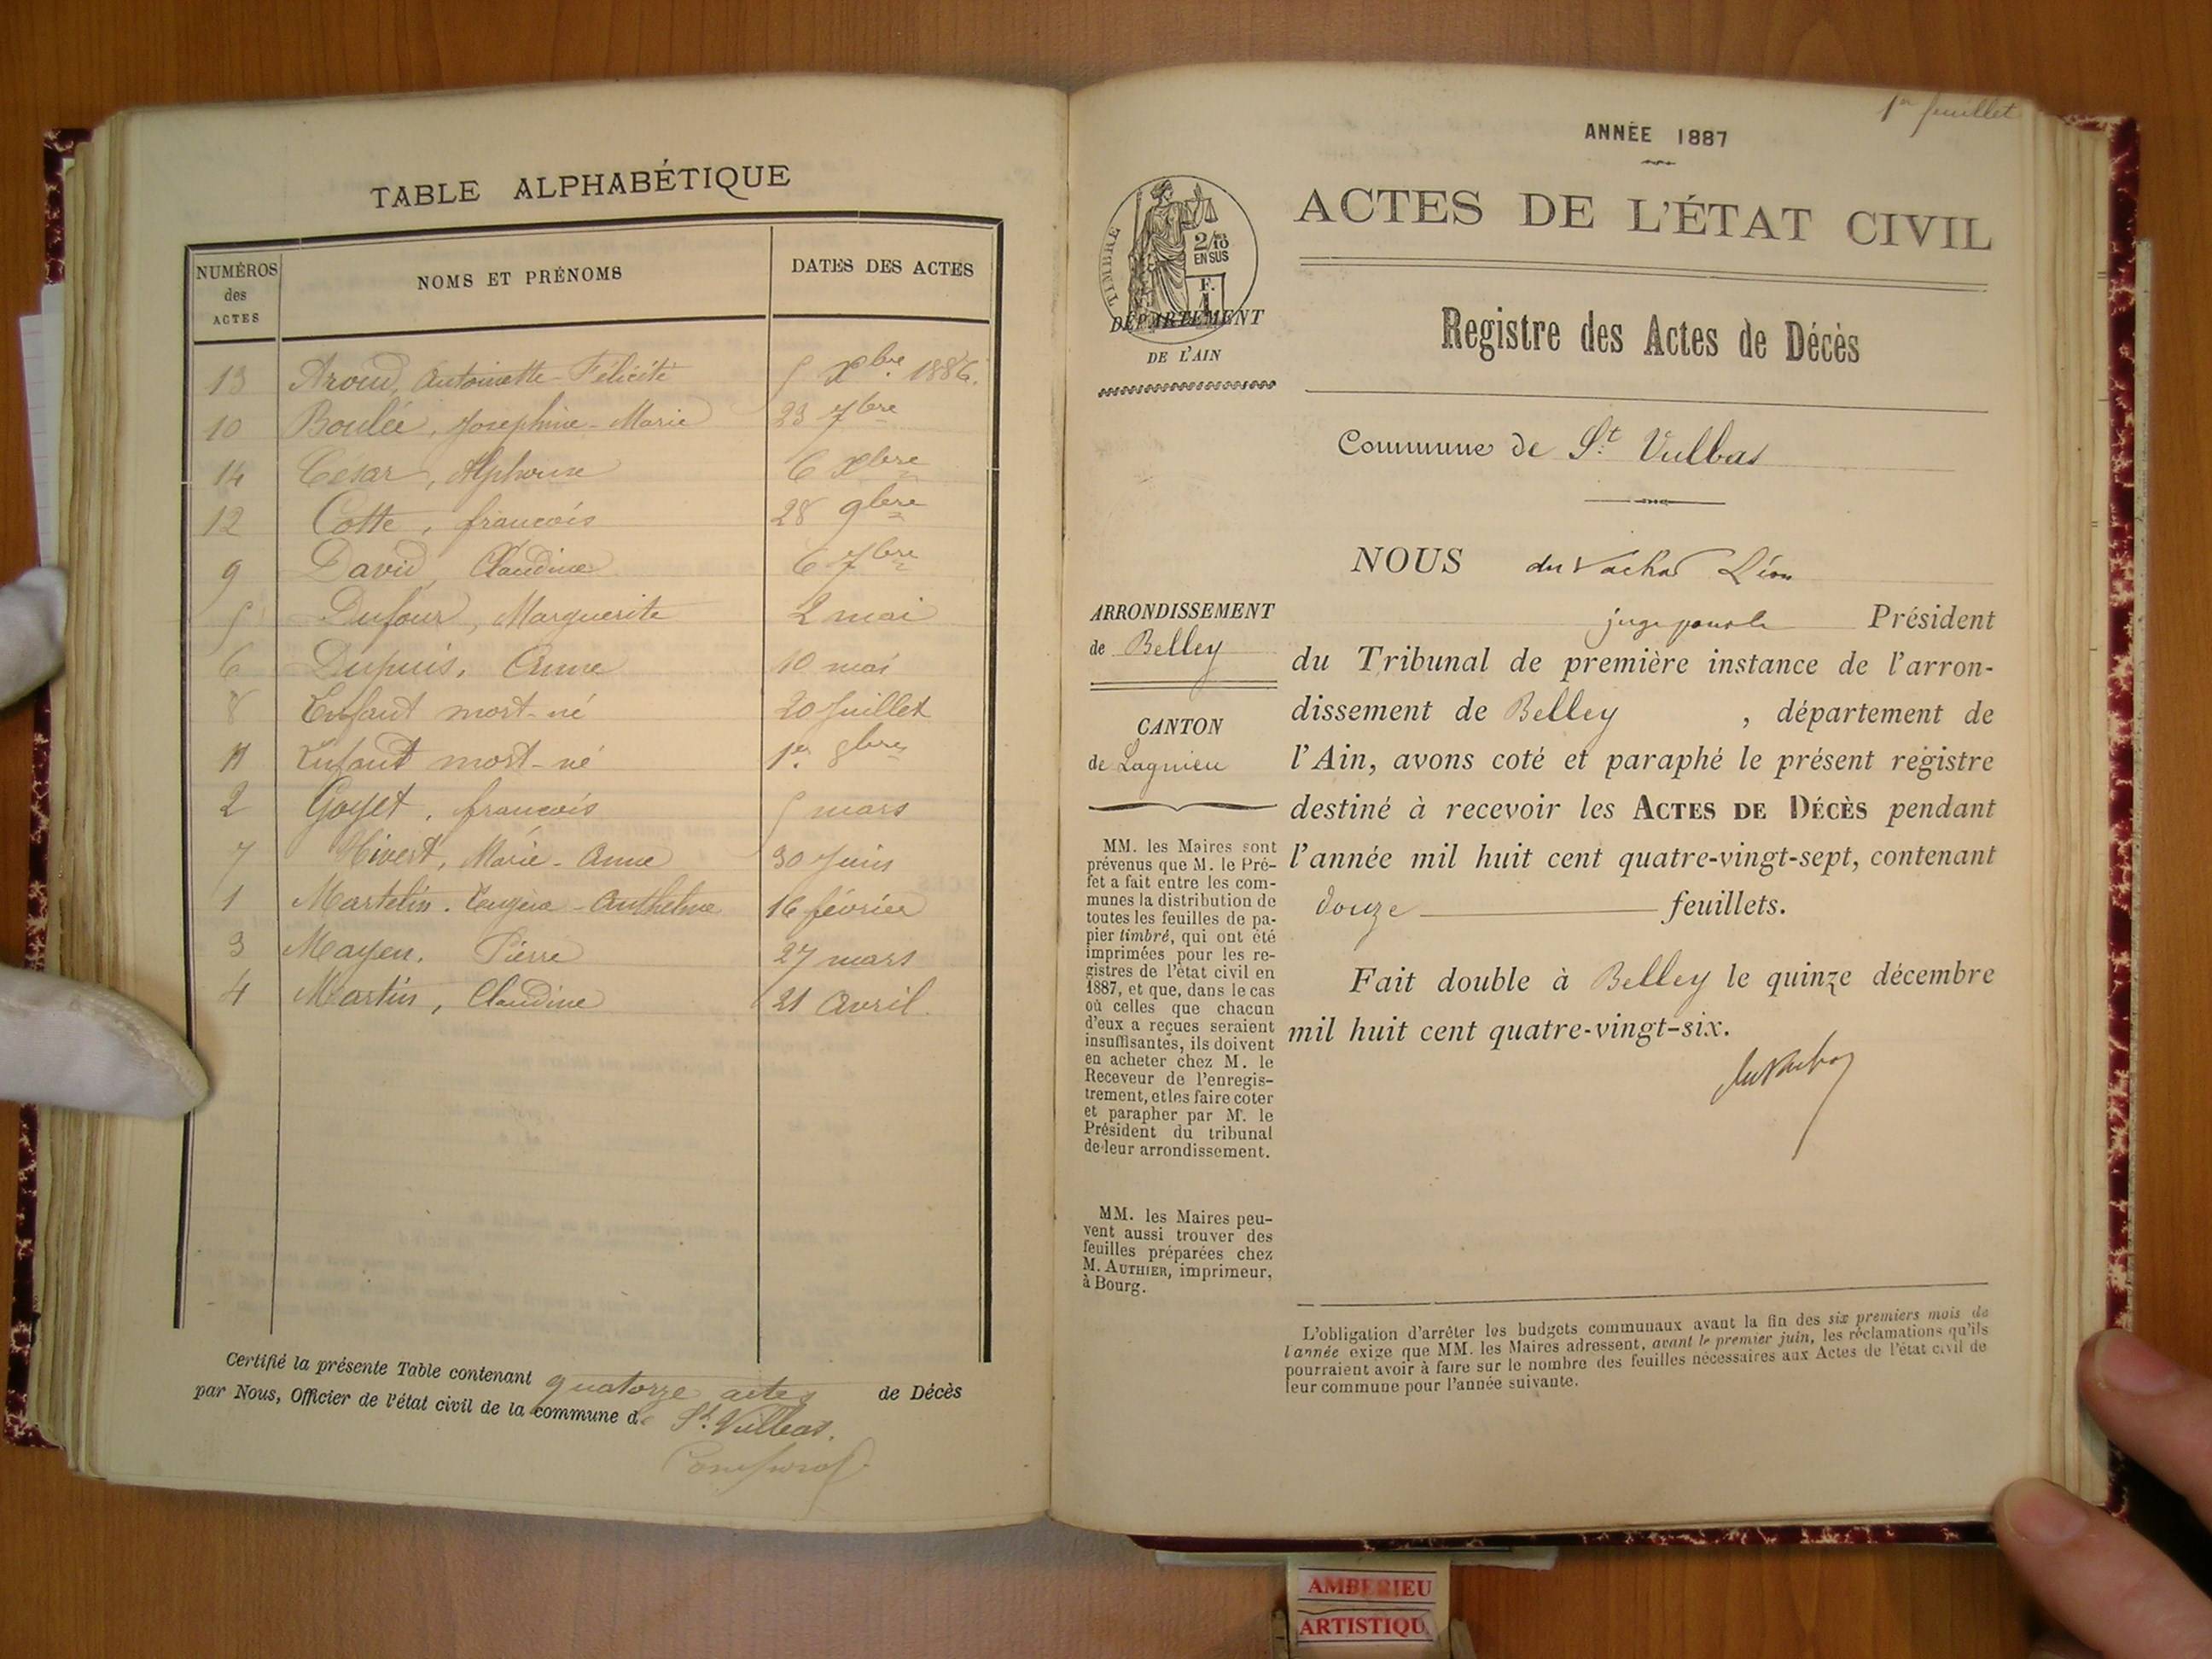 TABLE ALPHABÉTIQUE
NUMÉROS des ACTES NOMS ET PRÉNOMS DATES DES ACTES
13 Aroud, Antoinette-Félicité 5 Xbre 1886.
10 Boulée, Joséphine-Marie 23 7bre
14 César, Alphonse 6 Xbre
12 Cotte, françois 28 9bre
9 David, Claudine 6 7bre
5 Dufour, Marguerite 2 mai
6 Dupuis, Anne 10 mai
8 Enfant mort-né 20 Juillet
11 Enfant mort-né 1er 8bre
2 Goyet, françois 5 mars
7 Hivert, Marie-Anne 30 Juin
1 Martelin. Anthelme 16 février
3 Mayen. Pierre 27 mars
4 Martin, Claudine 21 Avril.
Certifié la présente Table contenant quatorze actes de Décès
par Nous, Officier de l'état civil de la commune de St. Vulbas.
1er feuillet
ANNÉE 1887
TIMBRE
2/10 EN SUS
F.
1
DÉPARTEMENT
DE L'AIN
ACTES DE L'ÉTAT CIVIL
Registre des Actes de Décès
Commune de St. Vulbas
ARRONDISSEMENT
de Belley
CANTON
de Lagnieu
MM. les Maires sont
prévenus que M. le Pré-
fet a fait entre les com-
munes la distribution de
toutes les feuilles de pa-
pier timbré, qui ont été
imprimées pour les re-
gistres de l'état civil en
1887, et que, dans le cas
où celles que chacun
d'eux a reçues seraient
insuffisantes, ils doivent
en acheter chez M. le
Receveur de l'enregis-
trement, et les faire coter
et parapher par Mr. le
Président du tribunal
de leur arrondissement.
MM. les Maires peu-
vent aussi trouver des
feuilles préparées chez
M. AUTHIER, imprimeur,
à Bourg.
NOUS du Vachat Léon
juge pour le Président
du Tribunal de première instance de l'arron-
dissement de Belley , département de
l'Ain, avons coté et paraphé le présent registre
destiné à recevoir les ACTES DE DÉCÈS pendant
l'année mil huit cent quatre-vingt-sept, contenant
douze feuillets.
Fait double à Belley le quinze décembre
mil huit cent quatre-vingt-six.
L'obligation d'arrêter les budgets communaux avant la fin des six premiers mois de
l'année exige que MM. les Maires adressent, avant le premier juin, les réclamations qu'ils
pourraient avoir à faire sur le nombre des feuilles nécessaires aux Actes de l'état civil de
leur commune pour l'année suivante.
AMBERIEU
ARTISTIQU